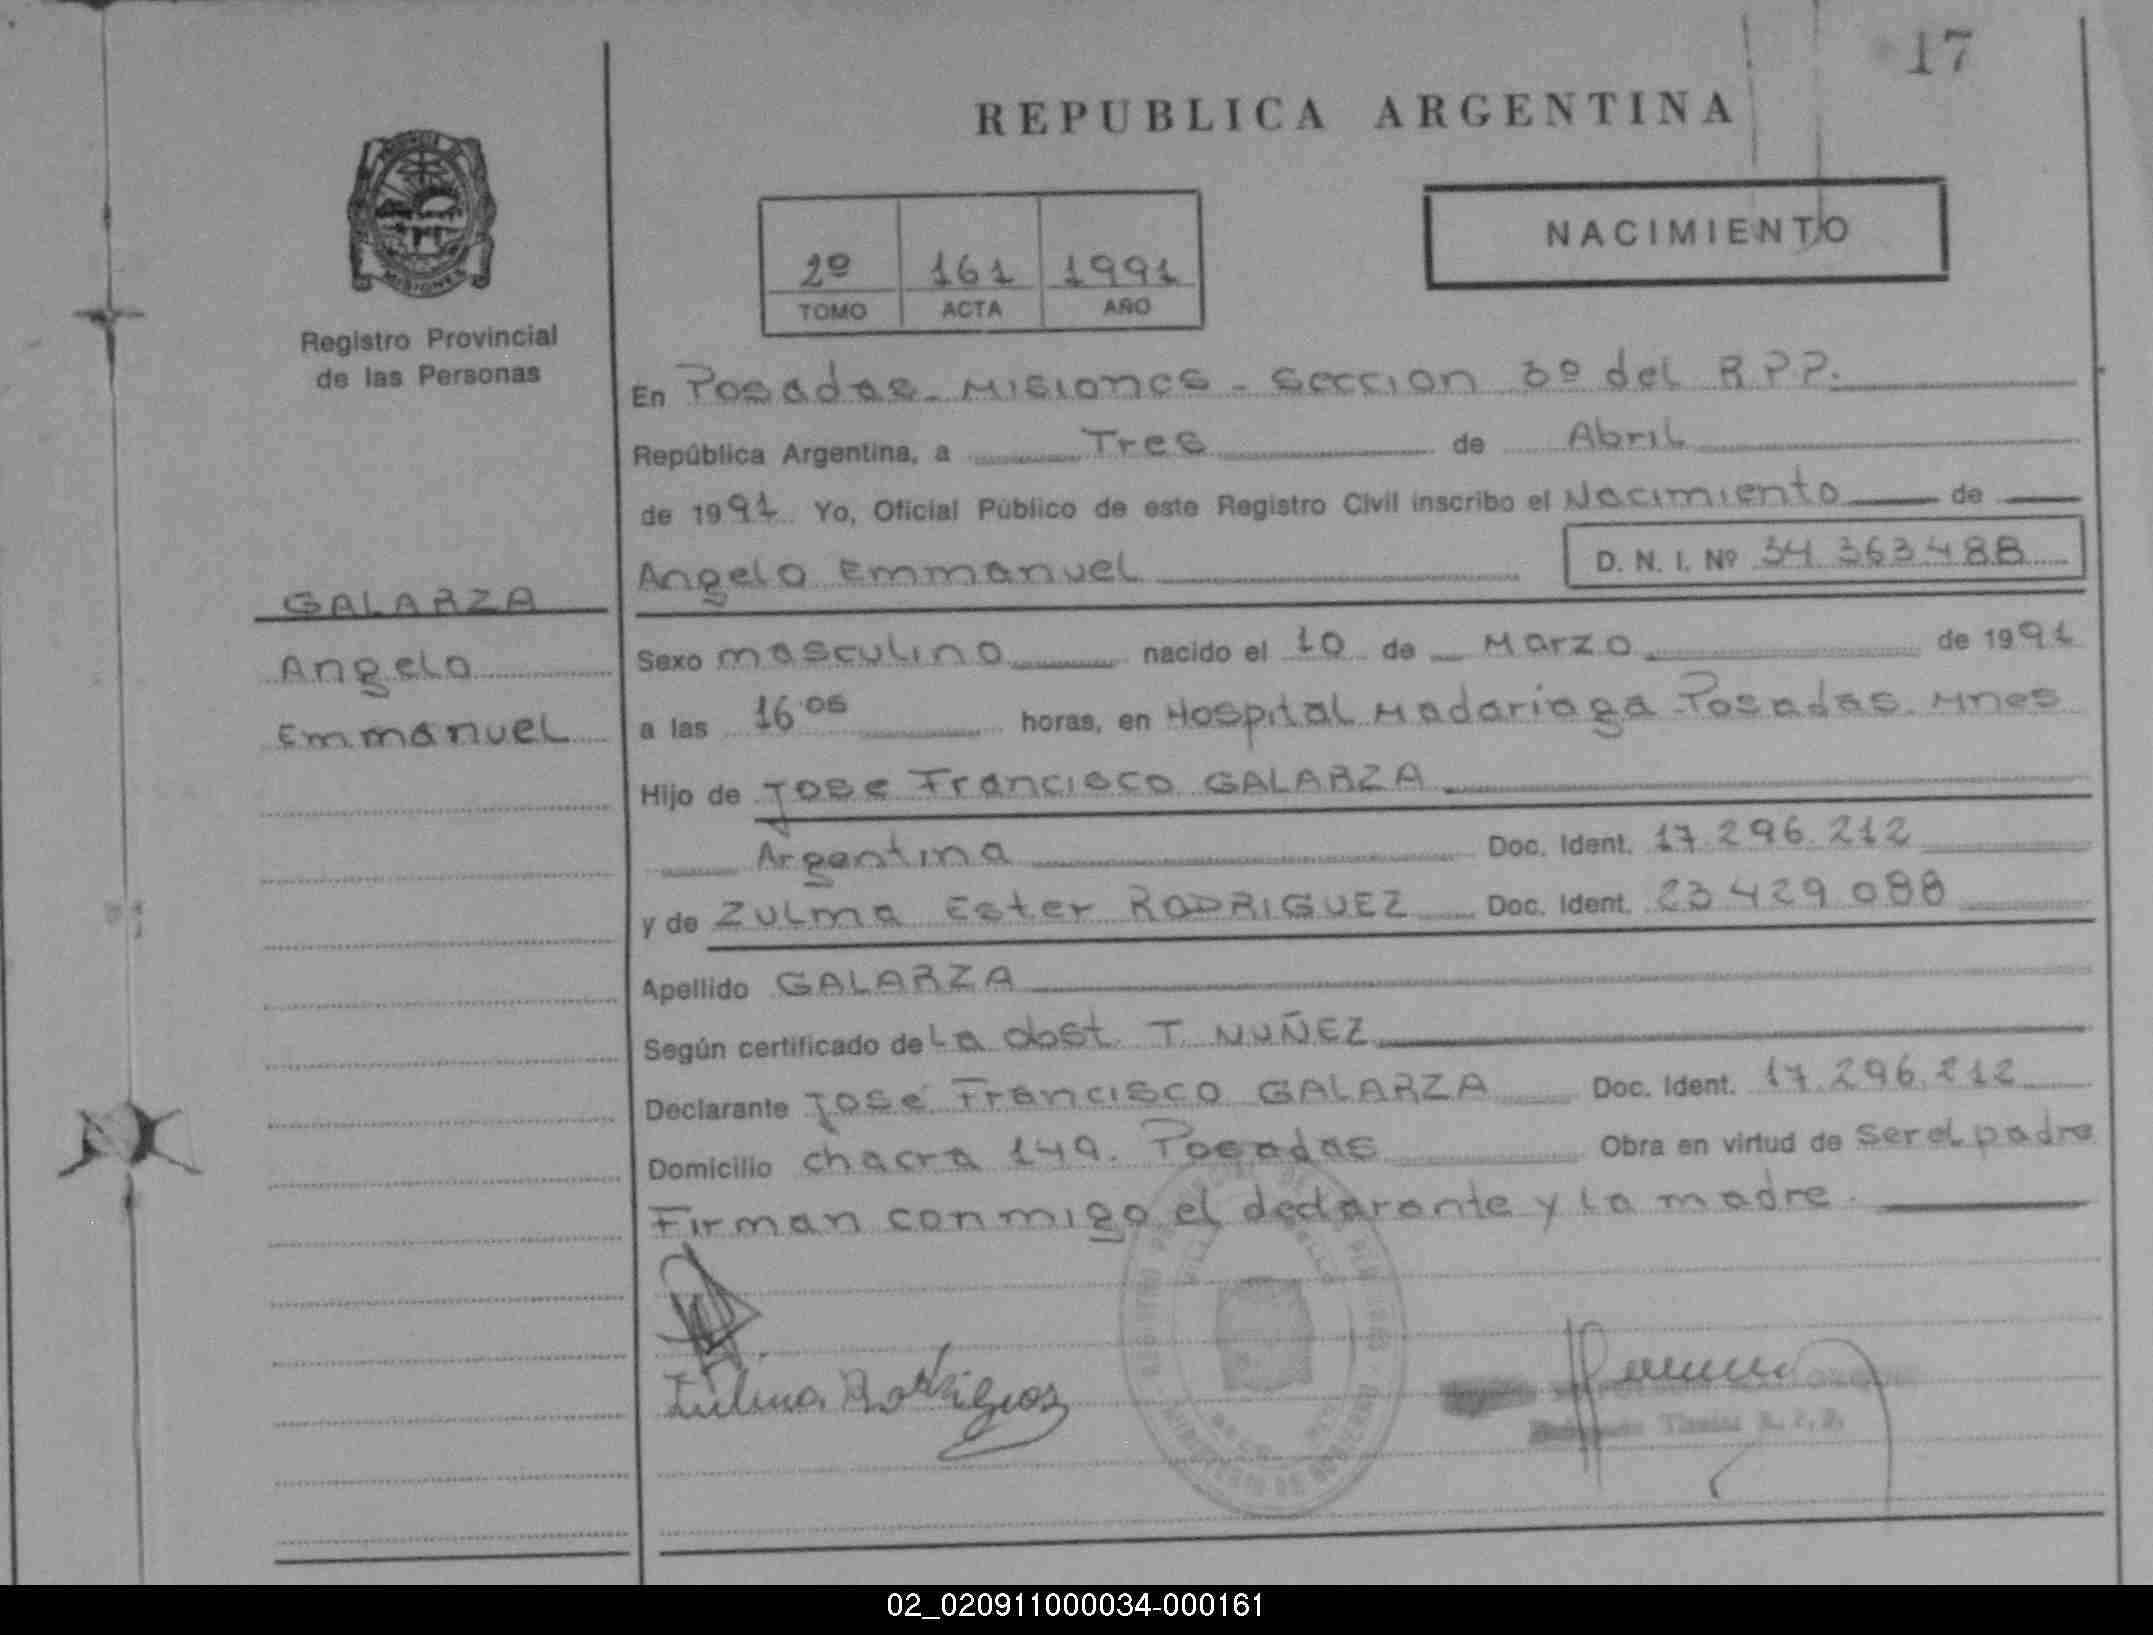 17
REPUBLICA ARGENTINA
NACIMIENTO
2º 161 1991
TOMO ACTA AÑO
MISIONES
Registro Provincial
de las Personas
En Posadas - Misiones - Seccion 3º del R.P.P.
República Argentina, a Tres de Abril
de 1991 Yo, Oficial Público de este Registro Civil inscribo el Nacimiento de
Angelo Emmanuel D. N. I. Nº 34.363.488
GALARZA
Angelo
Emmanuel
Sexo masculino nacido el 10 de Marzo de 1991
a las 16 05 horas, en Hospital Madariaga Posadas. Mnes
Hijo de Jose Francisco GALARZA
Argentina Doc. Ident. 17.296.212
y de Zulma Ester RODRIGUEZ Doc. Ident. 23.429.088
Apellido GALARZA
Según certificado de La obst. T. NUÑEZ
Declarante José Francisco GALARZA Doc. Ident. 17.296.212
Domicilio chacra 149. Posadas Obra en virtud de ser el padre
Firman conmigo el declarante y la madre.
Zulma Rodriguez
R.P.P.
02_020911000034-000161